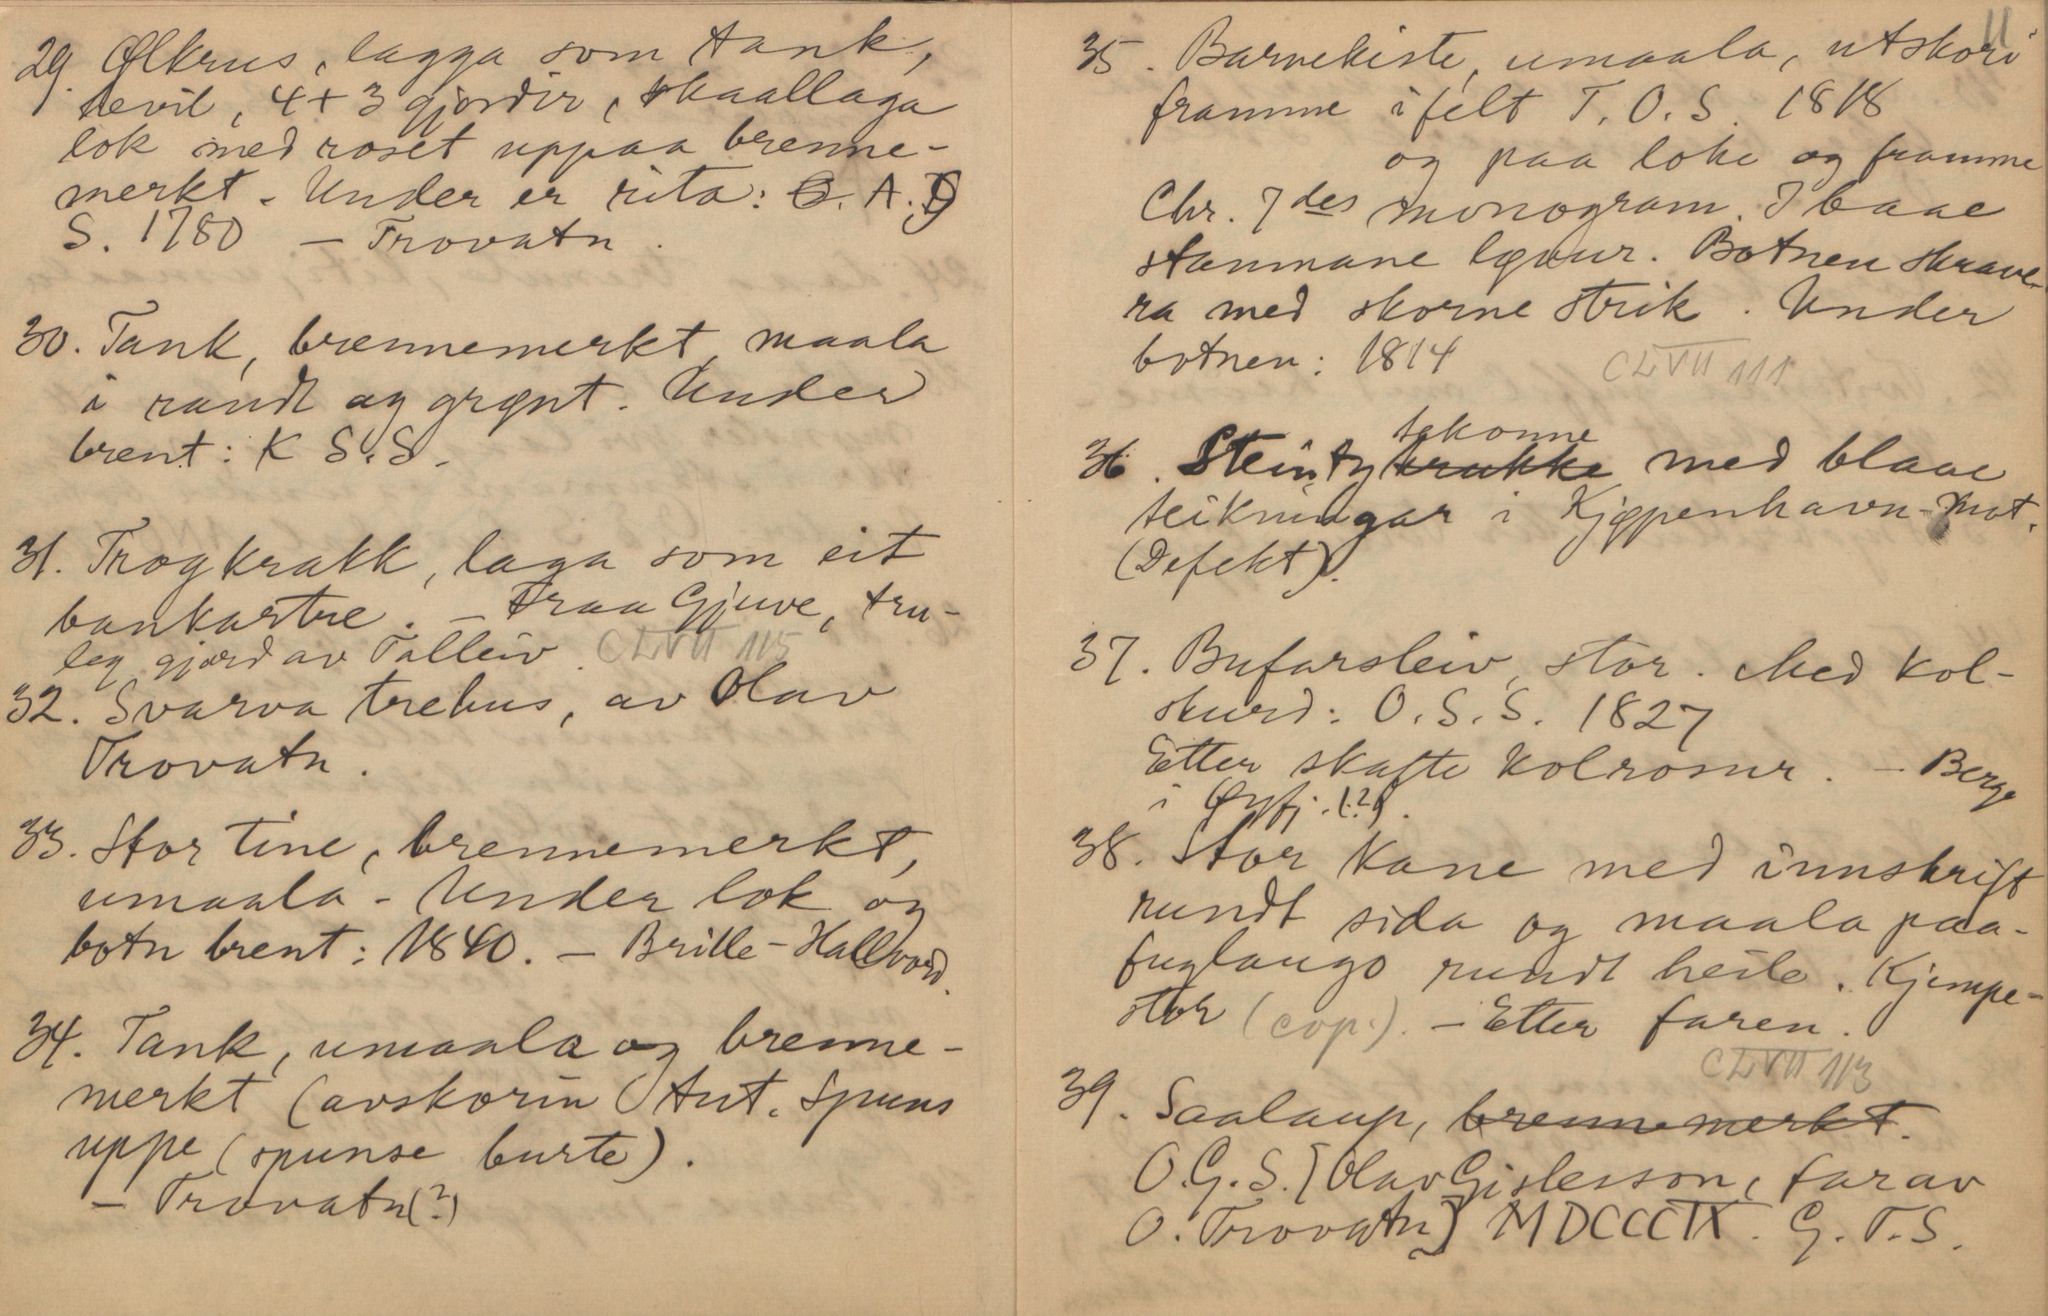 29. Ølkrus, lagga som tank,
tevil, 4 + 3 gjordir, skaallaga
lok med roset uppaa brenne-
merkt. Under er rita: O. A. D
S. 1780 – Trovatn.
30. Tank, brennemerkt, maala
i raudt og grønt. Under
brent: K S. S.
31. Trogkrakk, laga som eit
bankartre. – Fraa Gjuve, tru-
leg gjord av Talleiv. CLVII 115
32. Svarva trehus, av Olav
Trovatn.
33. Stor tine, brennemerkt,
umaala - Under lok og
botn brent: 1840. – Brille-Hallvord.
34. Tank, umaala og brenne-
merkt (avskorin) Tut. Spuns
uppe (spunse burte).
– Trovatn (?)
11
35. Barnekiste, umaala, utskori
framme i felt T. O. S. 1818
og paa loke og framme
Chr. 7des monogram. I baae
stammane løvur. Botnen skrave-
ra med skorne strik. Under
botnen: 1814 CLVII 111
36. Steinty tekonne krukke med blaae
teikningar i Kjøpenhavn-mot.
(Defekt).
37. Bufarsleiv, stor. Med kol-
skurd: O. S. S. 1827
Etter skafte kolrosur. – Berge
i Øyfj. (?).
38. Stor kane med innskrift
rundt sida og maala paa-
fuglaugo rundt heile. Kjempe-
stor (cop.). – Etter faren.
CLVII 113
39. Saalaup, brennemerkt.
O. G. S. [Olav Gislesson, far av
O. Trovatn] MDCCCIX. G. T. S.